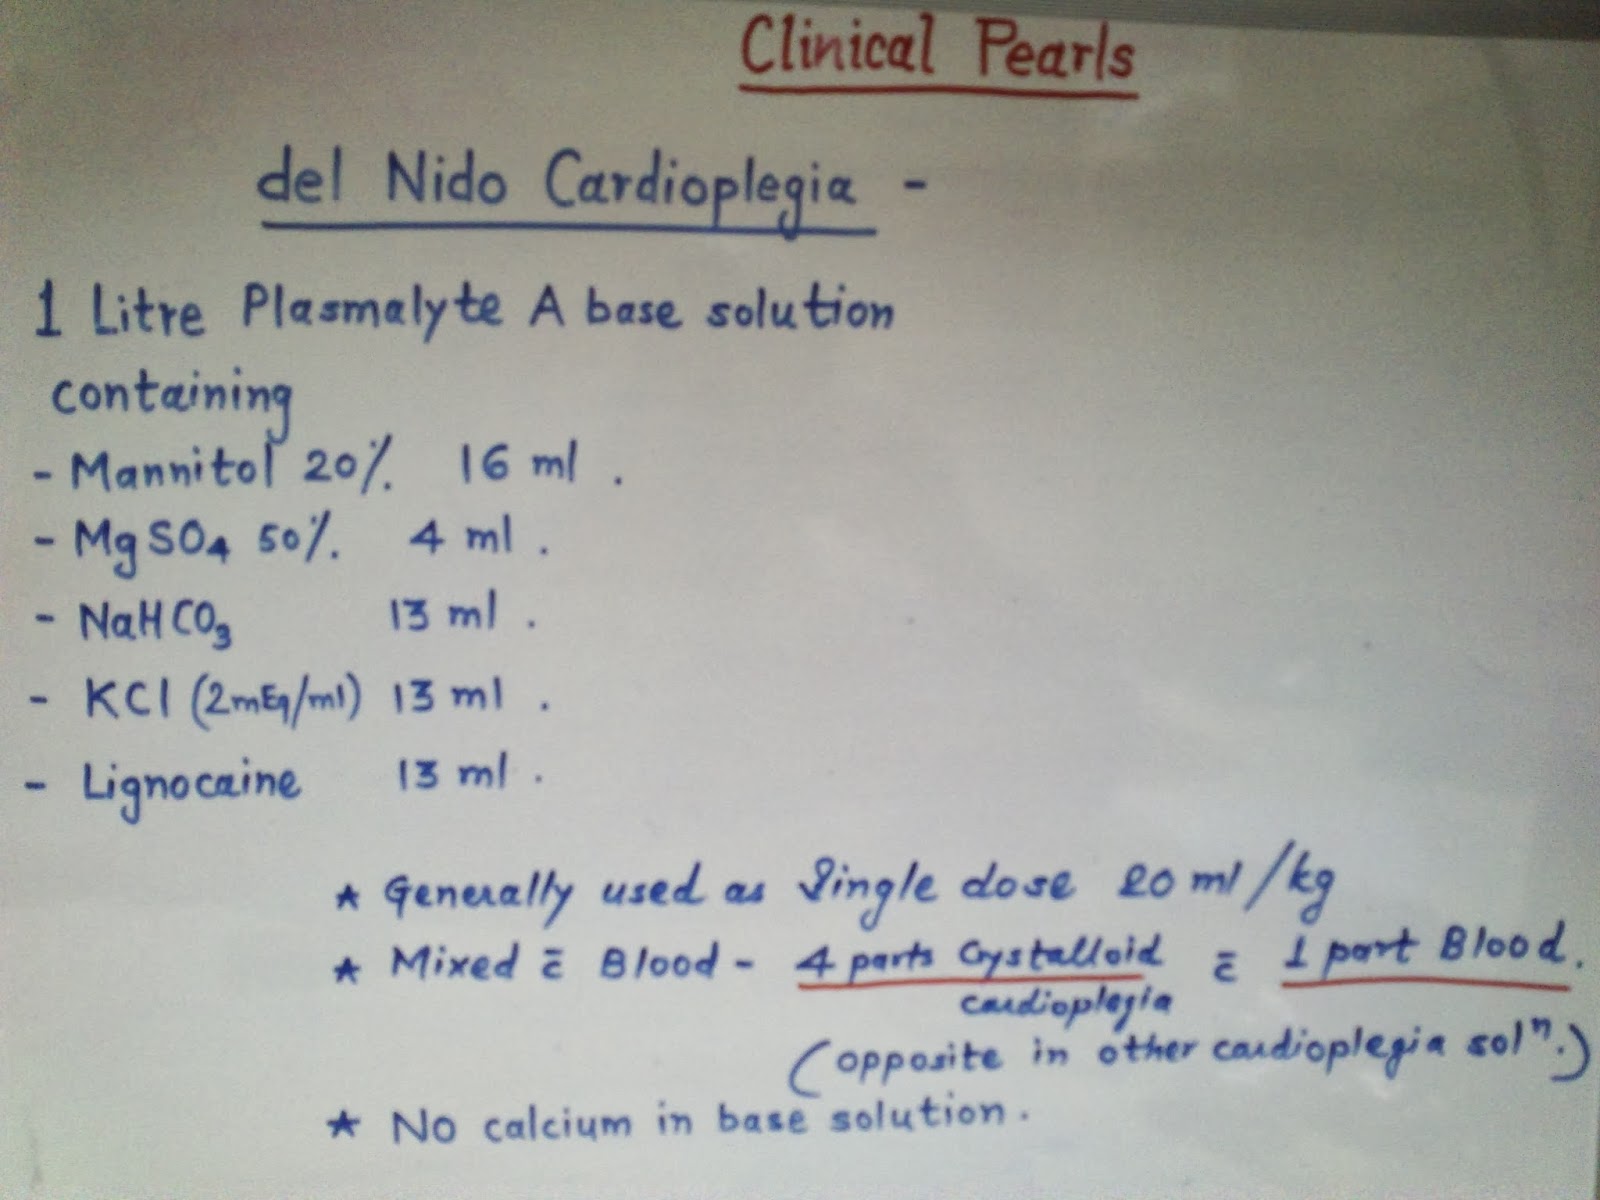 Clinical Pearls
del Nido Cardioplegia -
1 Litre Plasmalyte A base solution
containing
- Mannitol 20% 16 ml .
- MgSO4 50% 4 ml .
- NaHCO3 13 ml .
- KCl (2mEq/ml) 13 ml .
- Lignocaine 13 ml .
★ Generally used as Single dose 20 ml/kg
★ Mixed c̄ Blood - 4 parts Crystalloid c̄ 1 part Blood.
cardioplegia
(opposite in other cardioplegia solⁿ.)
★ No calcium in base solution.